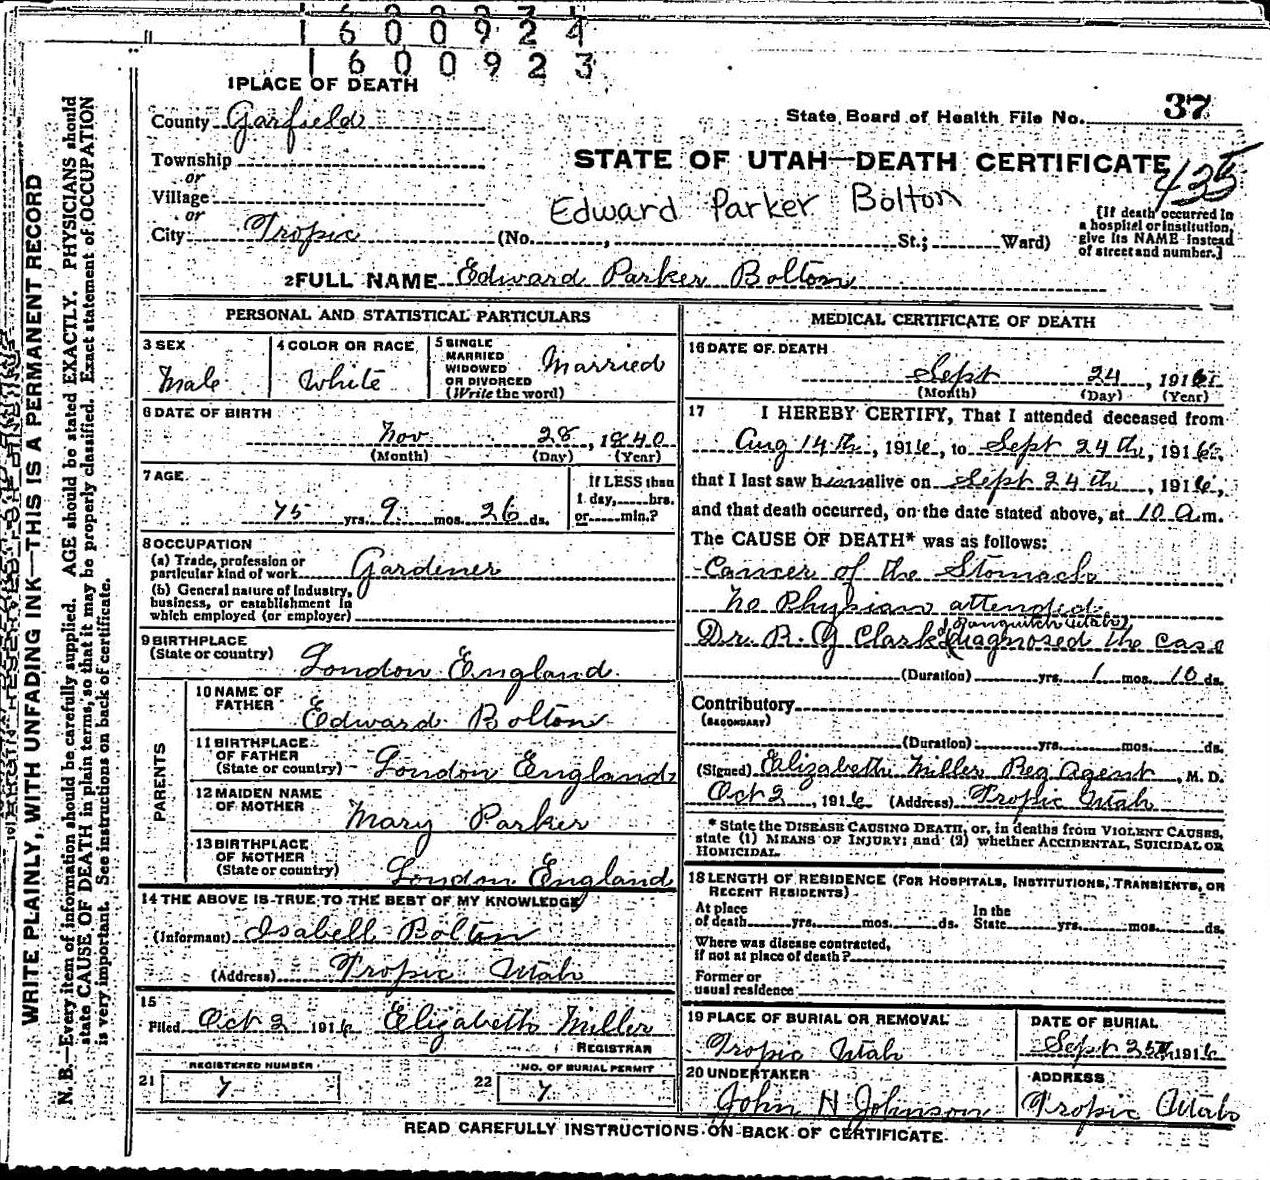 1 6 0 0 9 2 4
1 6 0 0 9 2 3
1 PLACE OF DEATH
County Garfield
State Board of Health File No. 37
Township
or
Village
or
City Tropic
STATE OF UTAH—DEATH CERTIFICATE
435
Edward Parker Bolton
(No. , St.; Ward)
[If death occurred in
a hospital or institution,
give its NAME instead
of street and number.]
2 FULL NAME Edward Parker Bolton
PERSONAL AND STATISTICAL PARTICULARS
3 SEX
Male
4 COLOR OR RACE
White
5 SINGLE
MARRIED
WIDOWED
OR DIVORCED
(Write the word)
Married
6 DATE OF BIRTH
Nov 28, 1840
(Month) (Day) (Year)
7 AGE
75 yrs. 9 mos. 26 ds.
If LESS than
1 day, hrs.
or min.?
8 OCCUPATION
(a) Trade, profession or
particular kind of work Gardener
(b) General nature of Industry,
business, or establishment in
which employed (or employer)
9 BIRTHPLACE
(State or country) London England.
PARENTS
10 NAME OF
FATHER Edward Bolton
11 BIRTHPLACE
OF FATHER
(State or country) London England
12 MAIDEN NAME
OF MOTHER Mary Parker
13 BIRTHPLACE
OF MOTHER
(State or country) London England
14 THE ABOVE IS TRUE TO THE BEST OF MY KNOWLEDGE
(Informant) Isabell Bolton
(Address) Tropic Utah
15
Filed Oct 2 1916 Elizabeth Miller
REGISTRAR
REGISTERED NUMBER
21 7
NO. OF BURIAL PERMIT
22 7
MEDICAL CERTIFICATE OF DEATH
16 DATE OF DEATH
Sept 24, 1916
(Month) (Day) (Year)
17 I HEREBY CERTIFY, That I attended deceased from
Aug 14th, 1916, to Sept 24th, 1916,
that I last saw him alive on Sept 24th, 1916,
and that death occurred, on the date stated above, at 10 a.m.
The CAUSE OF DEATH* was as follows:
Cancer of the Stomach
No Physian attended
(Panguitch Utah)
Dr. R. G Clark diagnosed the case
(Duration) yrs. 1 mos. 10 ds.
Contributory
(SECONDARY)
(Duration) yrs. mos. ds.
(Signed) Elizabeth Miller Reg Agent, M. D.
Oct 2, 1916 (Address) Tropic Utah
* State the DISEASE CAUSING DEATH, or, in deaths from VIOLENT CAUSES,
state (1) MEANS OF INJURY; and (2) whether ACCIDENTAL, SUICIDAL OR
HOMICIDAL.
18 LENGTH OF RESIDENCE (FOR HOSPITALS, INSTITUTIONS, TRANSIENTS, OR
RECENT RESIDENTS)
At place
of death yrs. mos. ds.
In the
State yrs. mos. ds.
Where was disease contracted,
if not at place of death?
Former or
usual residence
19 PLACE OF BURIAL OR REMOVAL
Tropic Utah
DATE OF BURIAL
Sept 25th 1916
20 UNDERTAKER
John H Johnson
ADDRESS
Tropic Utah
READ CAREFULLY INSTRUCTIONS ON BACK OF CERTIFICATE.
WRITE PLAINLY, WITH UNFADING INK—THIS IS A PERMANENT RECORD
N. B.—Every item of information should be carefully supplied. AGE should be stated EXACTLY. PHYSICIANS should
state CAUSE OF DEATH in plain terms, so that it may be properly classified. Exact statement of OCCUPATION
is very important. See instructions on back of certificate.